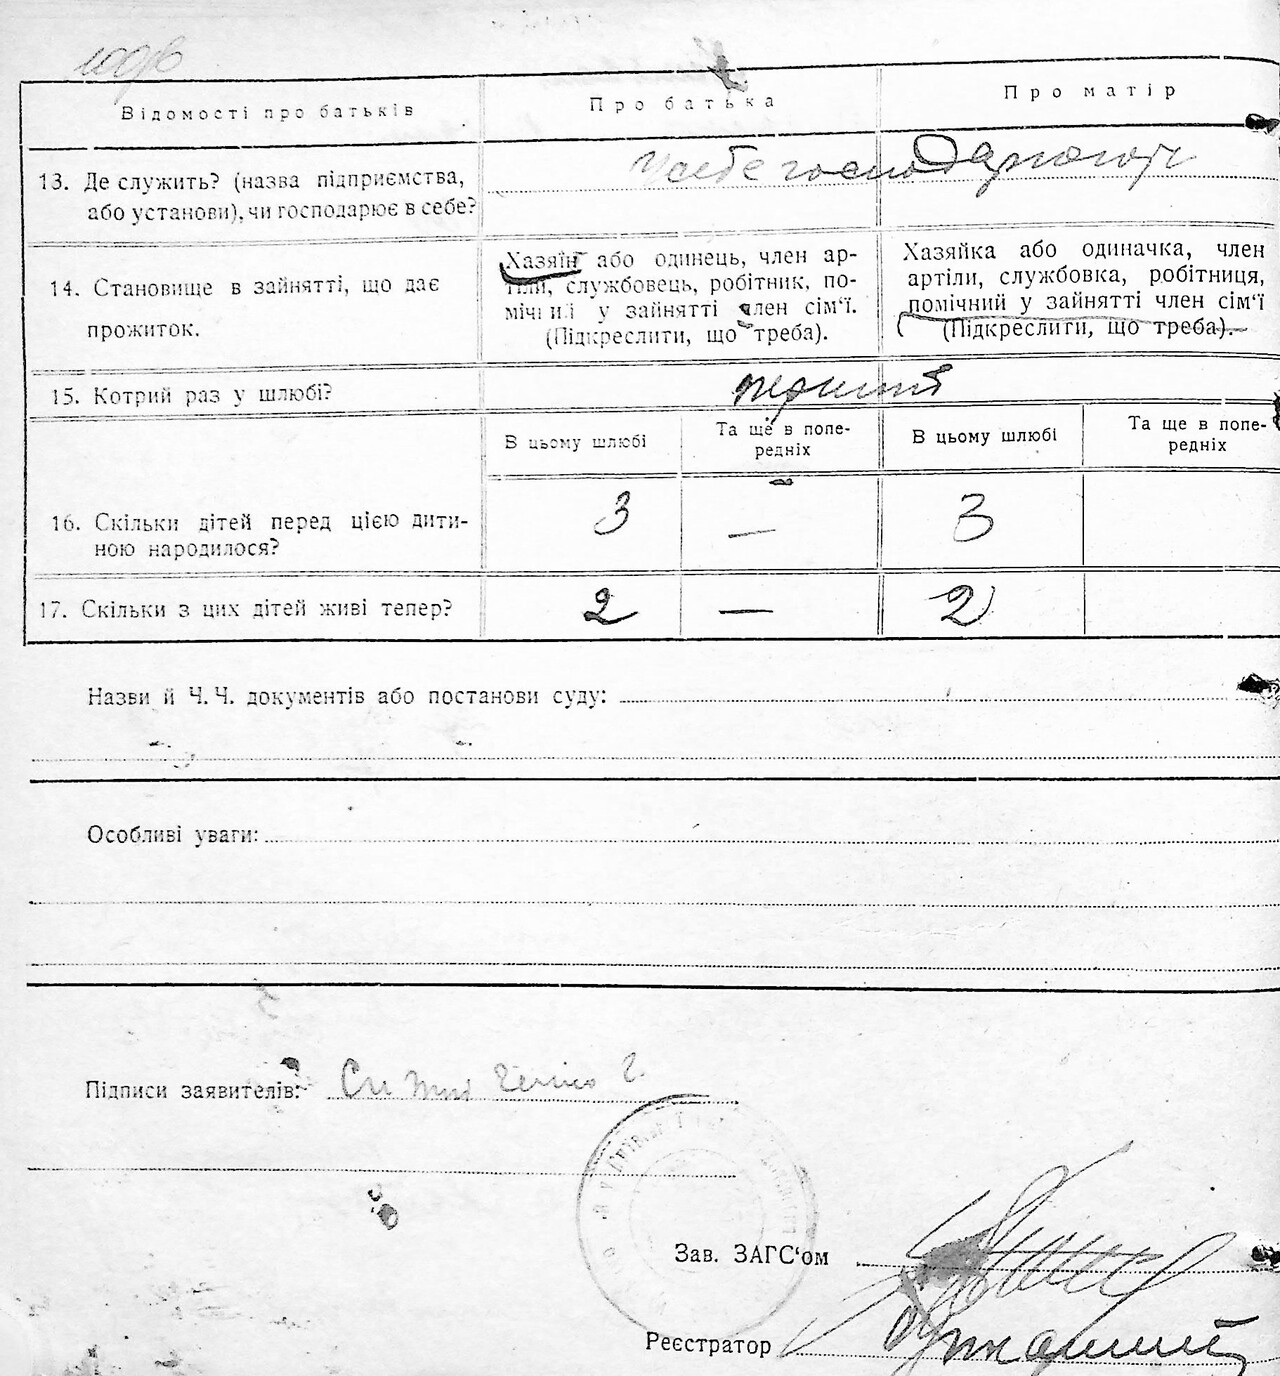 Відомості про батьків
Про батька
Про матір
13. Де служить? (назва підприємства,
або установи), чи господарює в себе?
У себе господарюють
14. Становище в зайнятті, що дає
прожиток.
Хазяїн або одинець, член ар-
тіли, службовець, робітник, по-
мічний у зайнятті член сім‘ї.
(Підкреслити, що треба).
Хазяйка або одиначка, член
артіли, службовка, робітниця,
помічний у зайнятті член сім‘ї
(Підкреслити, що треба).
15. Котрий раз у шлюбі?
перший
В цьому шлюбі
Та ще в попе-
редніх
В цьому шлюбі
Та ще в попе-
редніх
16. Скільки дітей перед цією дити-
ною народилося?
3 — 3
17. Скільки з цих дітей живі тепер?
2 — 2
Назви й Ч. Ч. документів або постанови суду:
Особливі уваги:
Підписи заявителів:
Зав. ЗАГС‘ом
Реєстратор